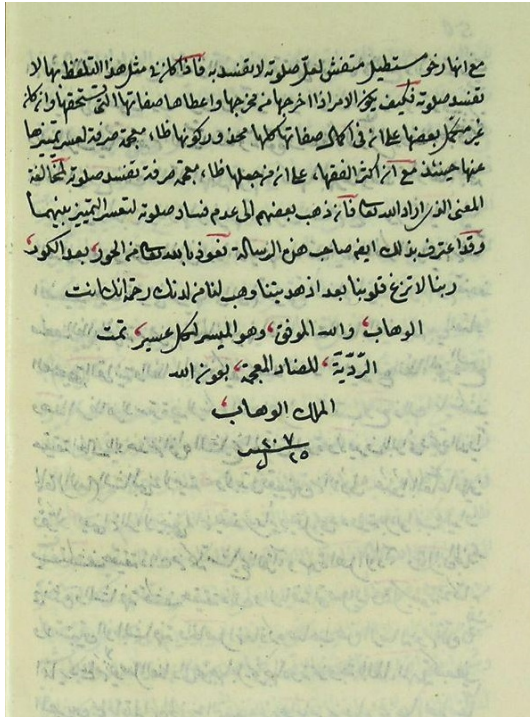 مع انها رخو مستطيل متفش لعل صلوته لا تفسد به فاذا كان في مثل هذا التلفظ بها لا
تفسد صلوته فكيف يكون الامر اذا اخرجها من مخرجها واعطاها صفاتها التي تستحقها وان كان
غير مكمل بعضها على ان في اكمال صفاتها كلها محذور كونها ظاء معجمة صرفة لعسر تمييزها
عنها حينئذ مع ان اكثر الفقهاء على ان من جعلها ظاء معجمة صرفة تفسد صلوته لمخالفة
المعنى الذي اراد الله تعالى فانه ذهب بعضهم الى عدم فساد صلوته لتعسر التمييز بينهما
وقد اعترف بذلك ايضا صاحب هذه الرسالة نعوذ بالله تعالى من الحور بعد الكور
ربنا لا تزغ قلوبنا بعد اذ هديتنا وهب لنا من لدنك رحمة انك انت
الوهاب والله الموفق وهو الميسر لكل عسير تمت
الردية للضاد المعجمة بعون الله
الملك الوهاب
٢٠٧
٢٥